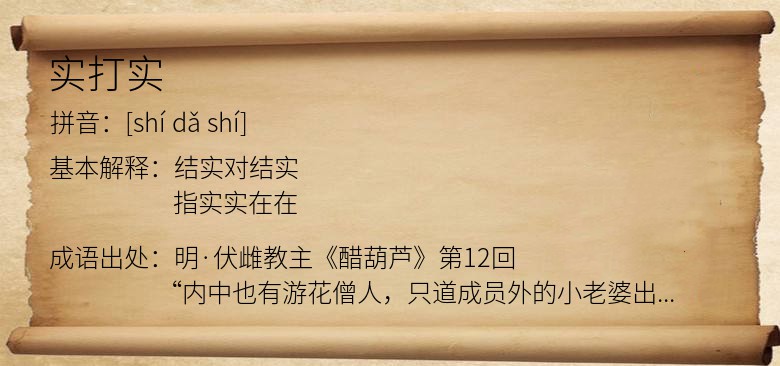 实打实
拼音：[shí dǎ shí]
基本解释：结实对结实
指实实在在
成语出处：明·伏雌教主《醋葫芦》第12回
“内中也有游花僧人，只道成员外的小老婆出...